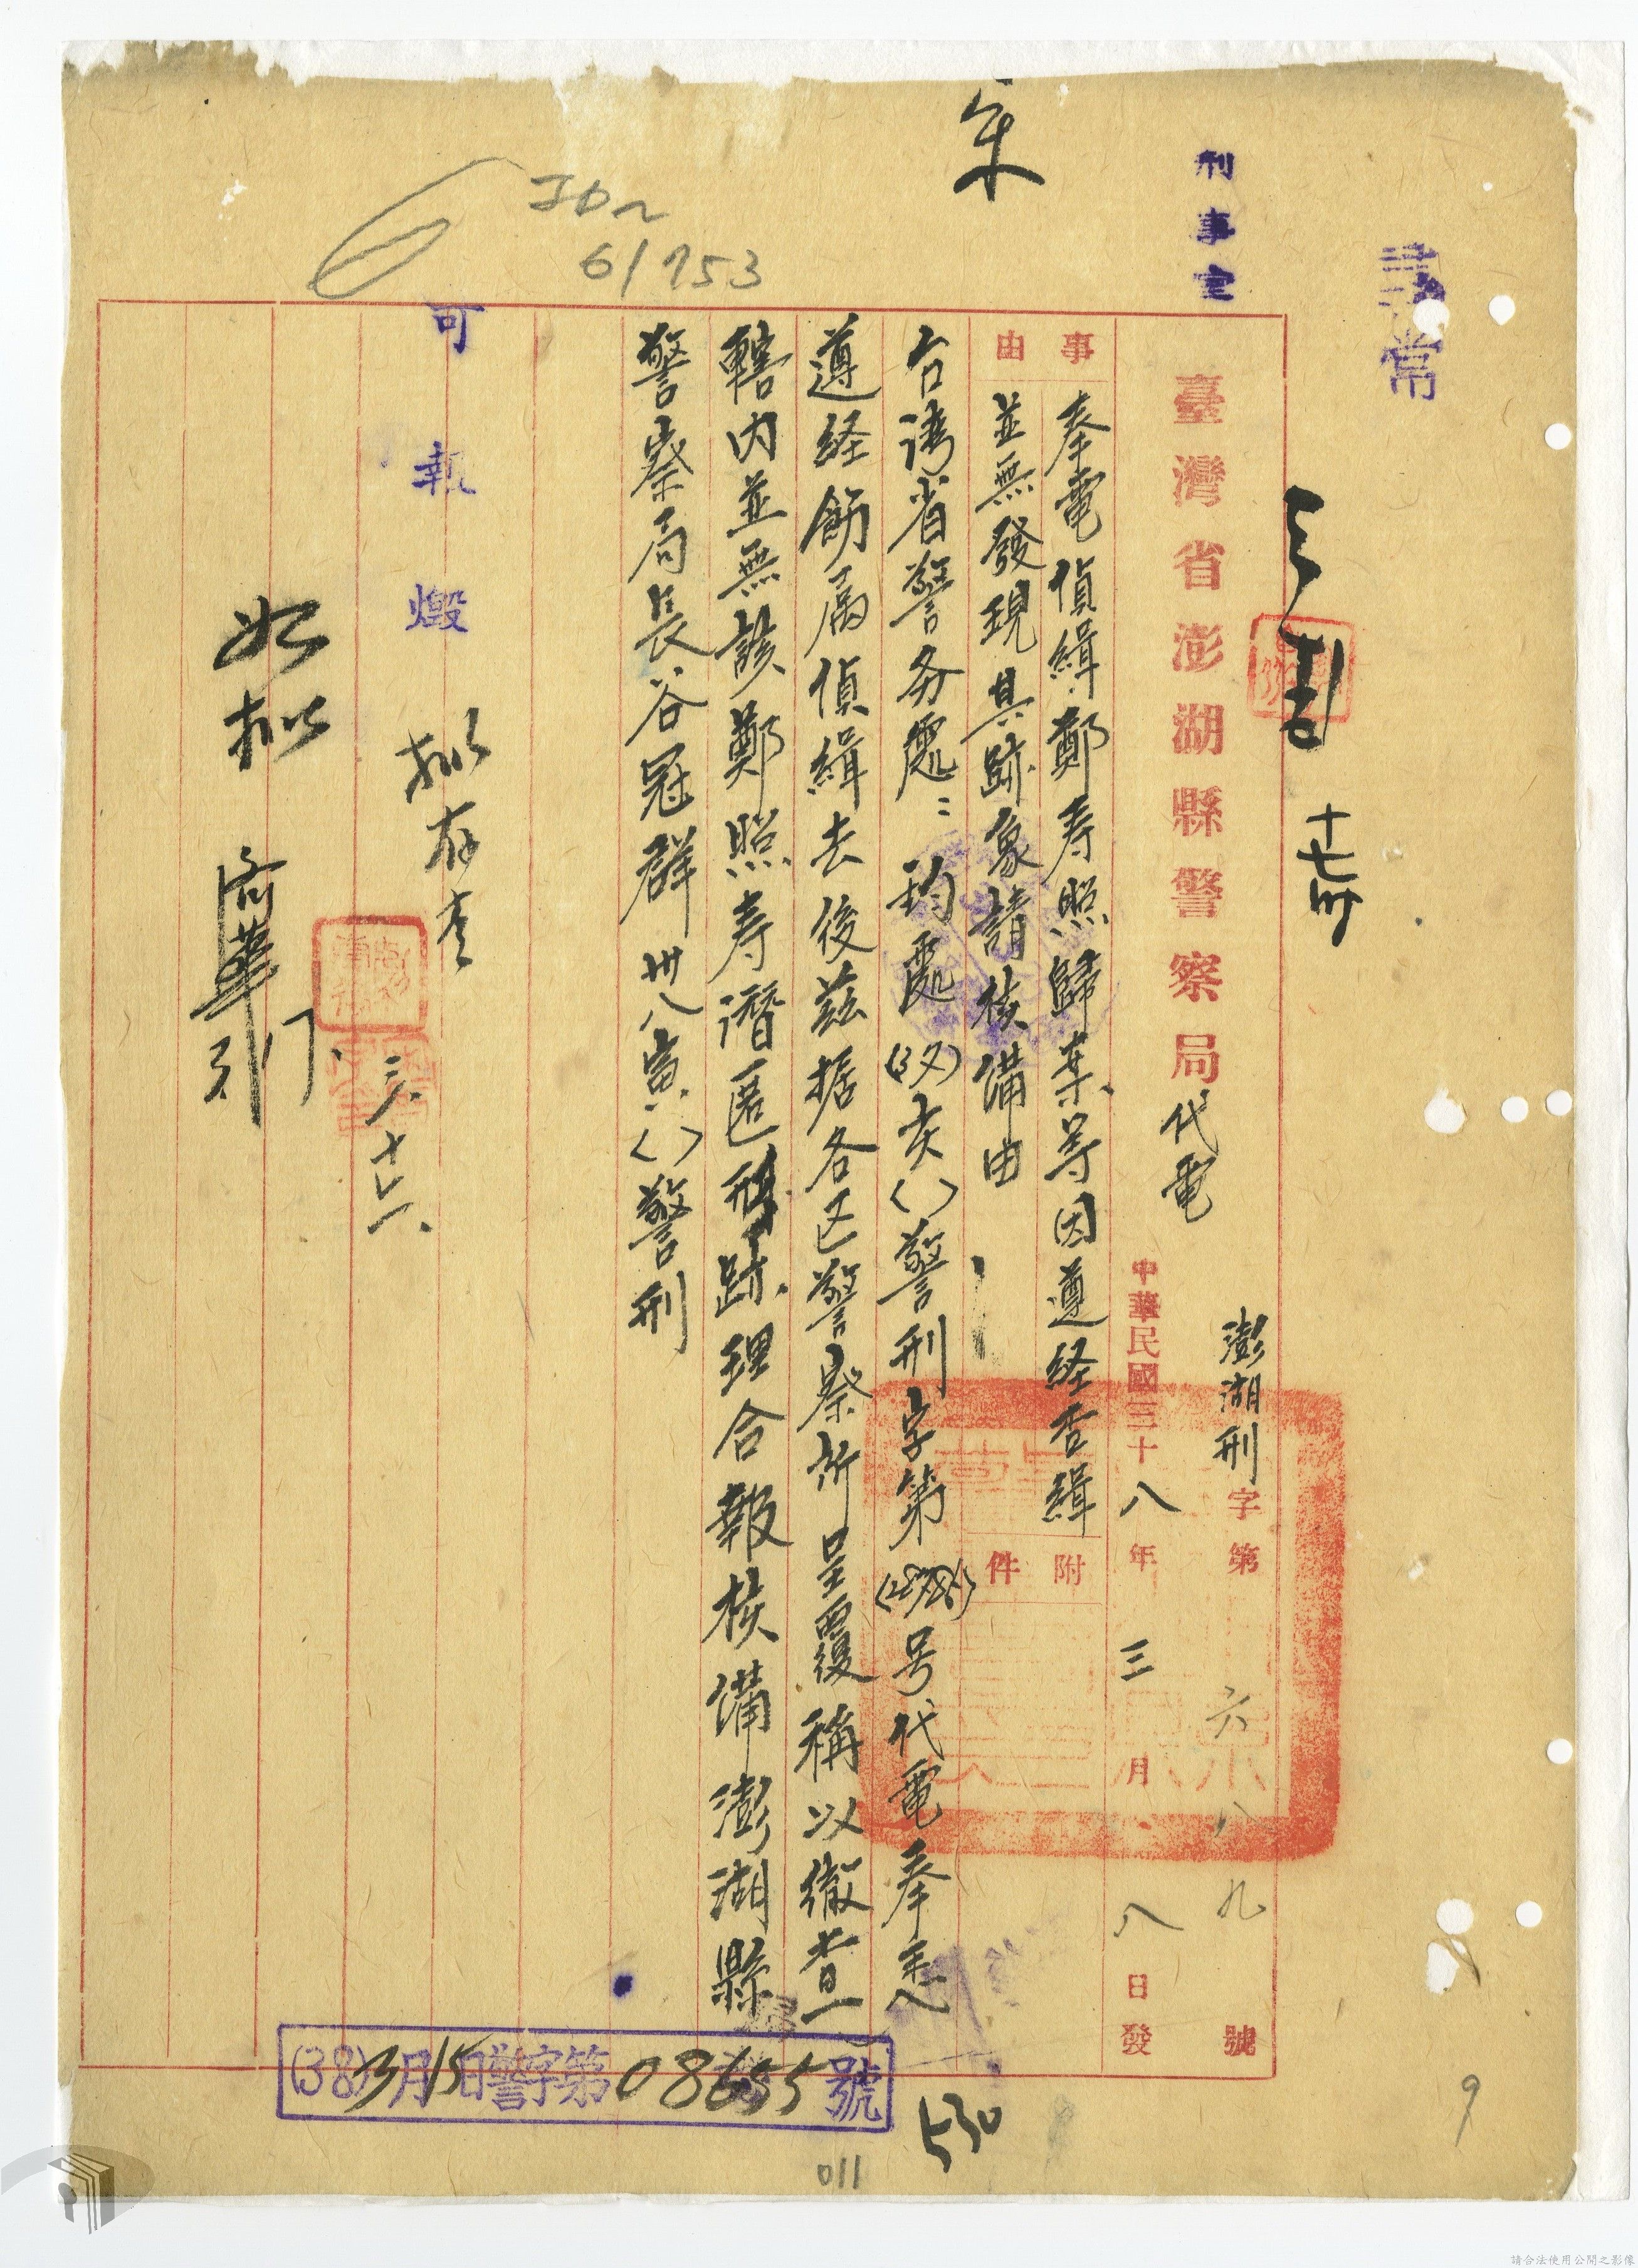 刑事室
臺灣省澎湖縣警察局代電
澎湖刑字第六八九號
中華民國三十八年三月八日發
事由
奉電偵緝鄭寿照歸案等因遵経查緝
並無發現其跡象請核備由
附件
台湾省警务處：鈞處(37)亥〈〉警刑字第(28786)号代電奉悉
遵経飭属偵緝去後茲据各区警察所呈覆稱以徹查
轄内並無該鄭照寿潛匿形跡理合報核備澎湖縣
警察局長谷冠群卅八寅〈〉警刑
擬存查
三、十六、
如擬
十七
(38)3月15日警字第08655號
530
011
9
61753
請合法使用公開之影像